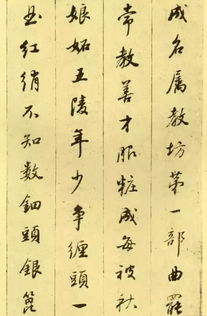 成名屬教坊第一部曲罷
常教善才服粧成每被秋
娘妬五陵年少爭纏頭一
曲紅綃不知數鈿頭銀篦